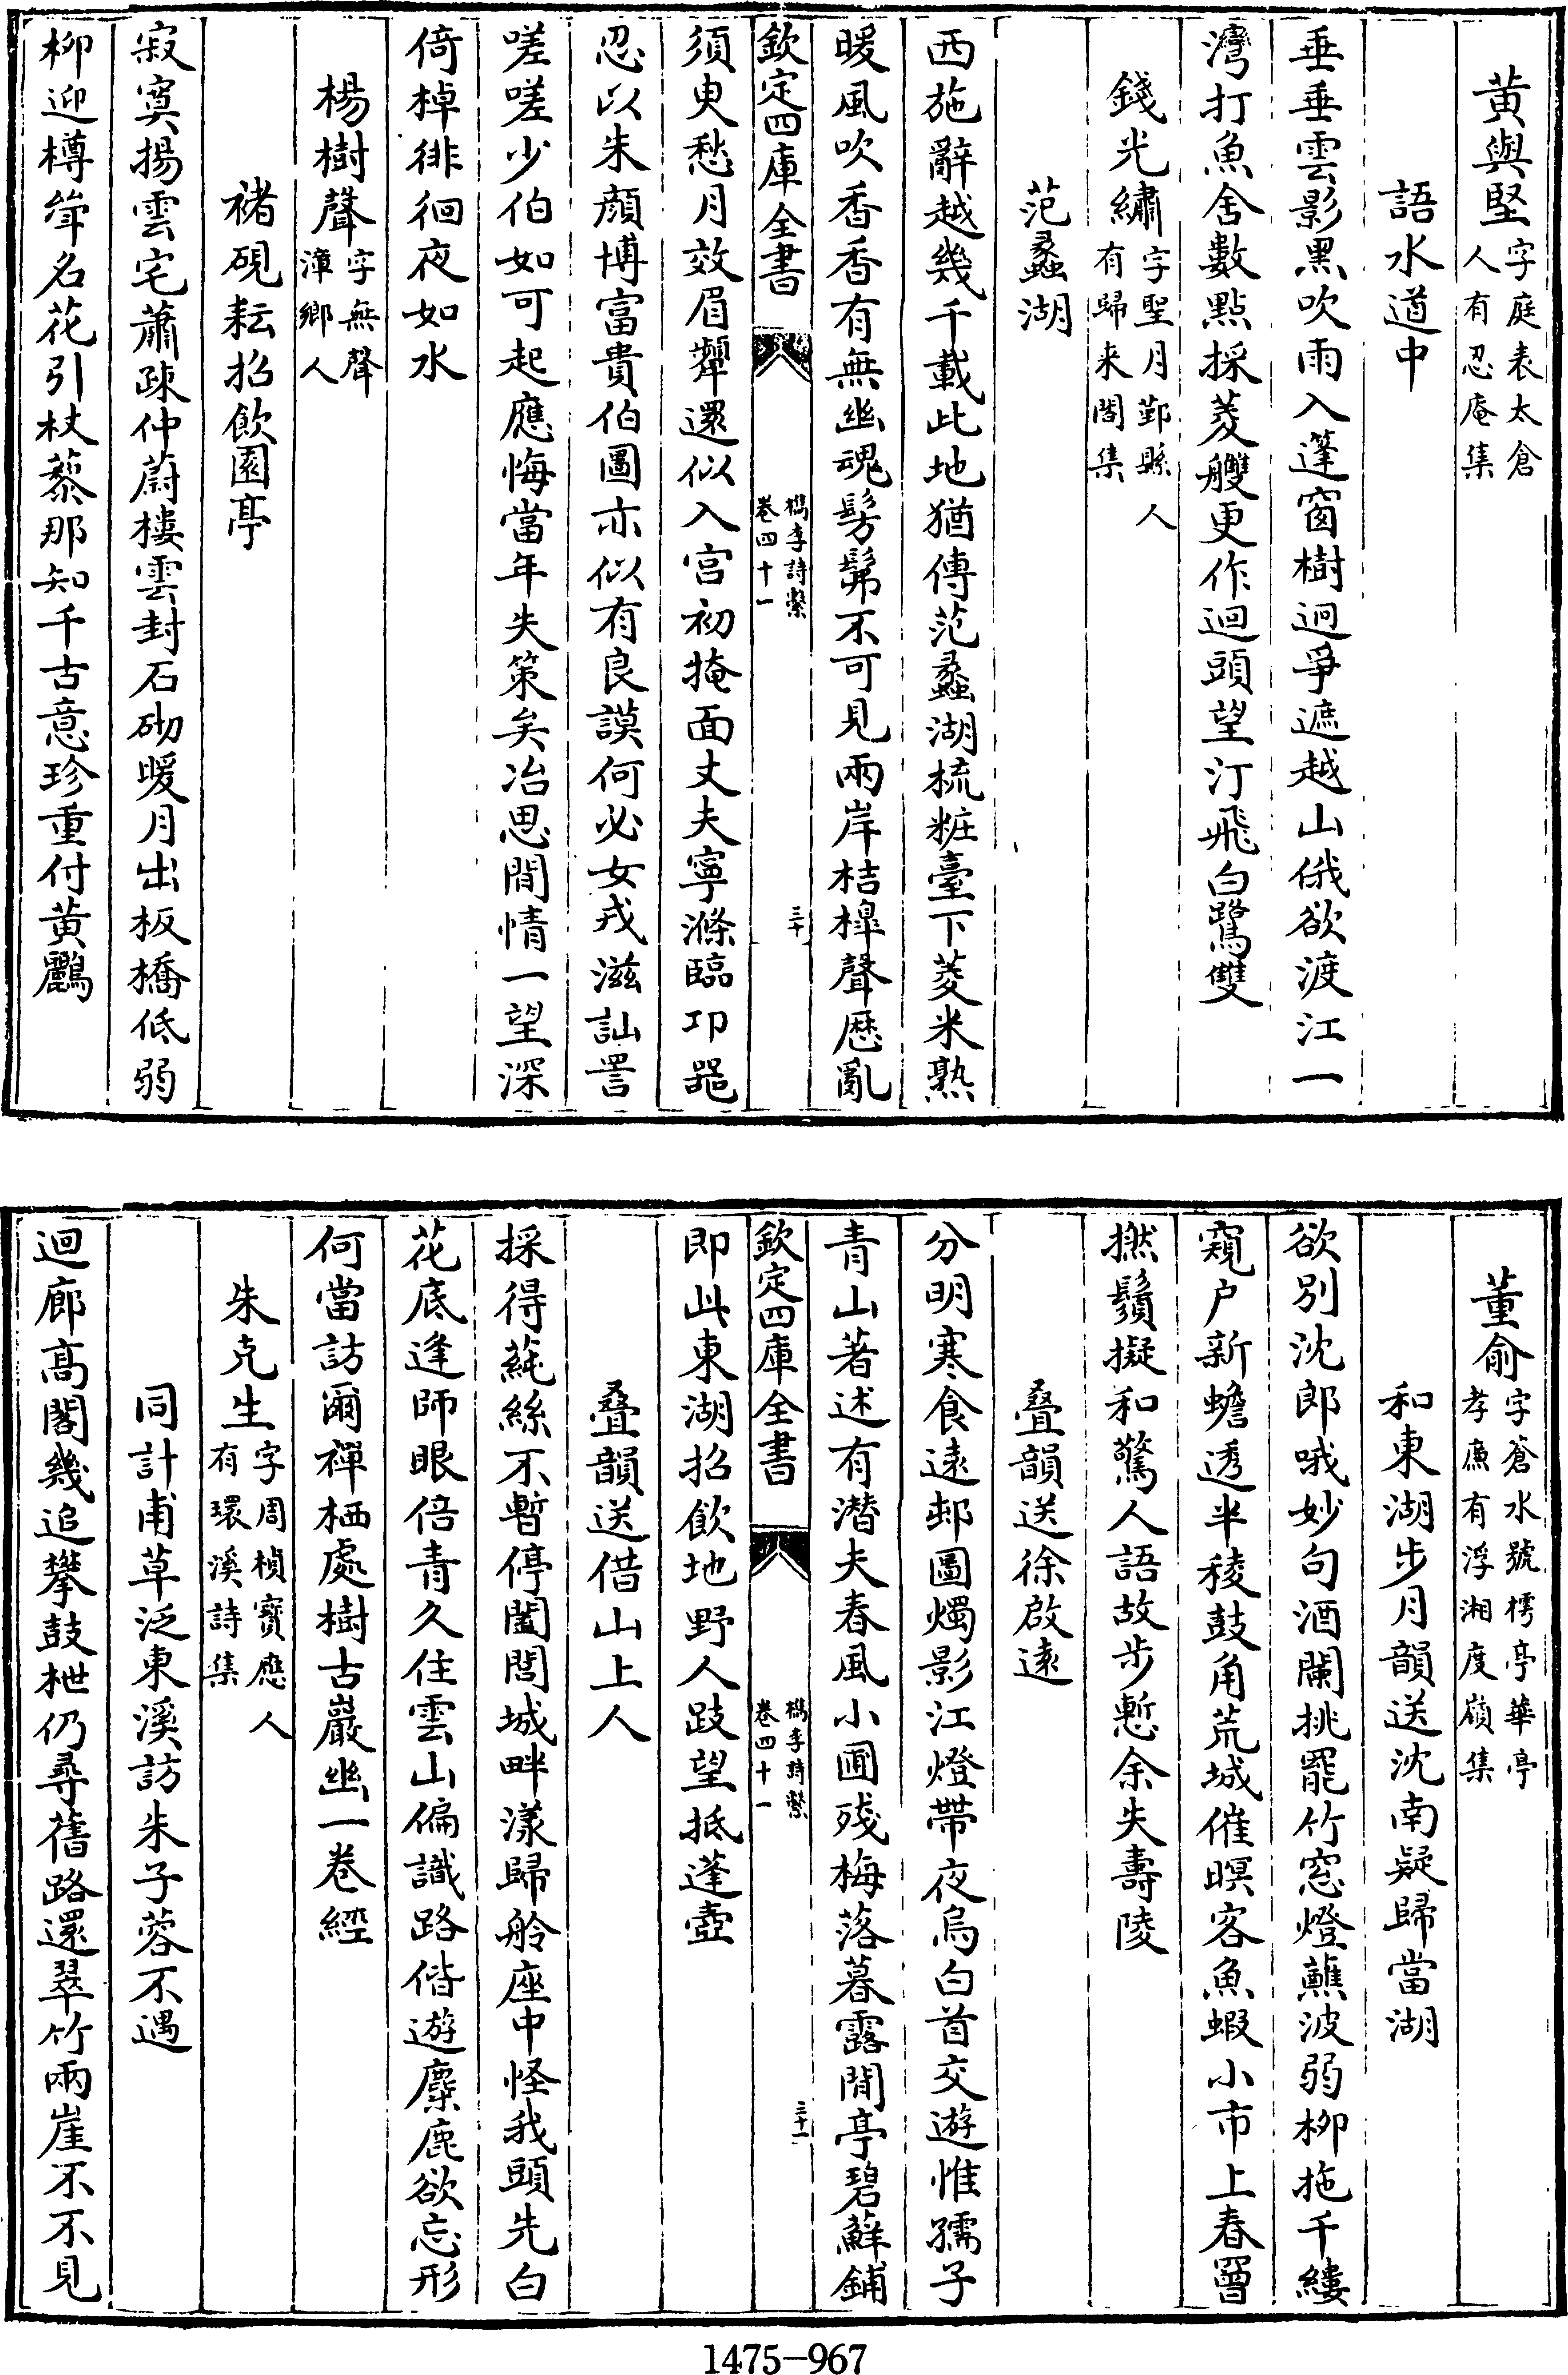 黄與堅字庭表太倉人有忍庵集
語水道中
垂垂雲影黑吹雨入篷窗樹迥爭遮越山俄欲渡江一
灣打魚舍數點採菱艭更作迴頭望汀飛白鷺雙
錢光繡字聖月鄞縣人有歸来閣集
范蠡湖
西施辭越幾千載此地猶傳范蠡湖梳粧臺下菱米熟
暖風吹香香有無幽魂髣髴不可見兩岸桔橰聲歴亂
欽定四庫全書
檇李詩繫
卷四十一
三十
須臾愁月效眉顰還似入宫初掩面丈夫寧滌臨卭噐
忍以朱顔博富貴伯圖亦似有良謨何必女戎滋訕詈
嗟嗟少伯如可起應悔當年失策矣冶思閒情一望深
倚棹徘徊夜如水
楊樹聲字無聲漳鄉人
褚硯耘招飲園亭
寂寞揚雲宅蕭疎仲蔚樓雲封石砌暖月出板橋低弱
柳迎樽耸名花引杖藜那知千古意珍重付黄鸝
董俞字蒼水號樗亭華亭孝廉有浮湘度嶺集
和東湖步月韻送沈南疑歸當湖
欲别沈郎哦妙句酒闌挑罷竹窓燈蘸波弱柳拖千縷
窺户新蟾透半稜鼓角荒城催暝客魚蝦小市上春罾
撚鬚擬和驚人語故步慙余失壽陵
叠韻送徐啟遠
分明寒食遠邨圖燭影江燈帶夜烏白首交遊惟孺子
青山著述有潜夫春風小圃殘梅落暮露閒亭碧蘚鋪
欽定四庫全書
檇李詩繫
卷四十一
三十一
即此東湖招飲地野人跂望抵蓬壺
叠韻送借山上人
採得蓴絲不暫停闔閭城畔漾歸舲座中怪我頭先白
花底逢師眼倍青久住雲山偏識路偕遊麋鹿欲忘形
何當訪爾禪栖處樹古巖幽一卷經
朱克生字周楨寶應人有環溪詩集
同計甫草泛東溪訪朱子蓉不遇
迴廊高閣幾追攀鼓枻仍尋舊路還翠竹兩崖不不見
1475-967